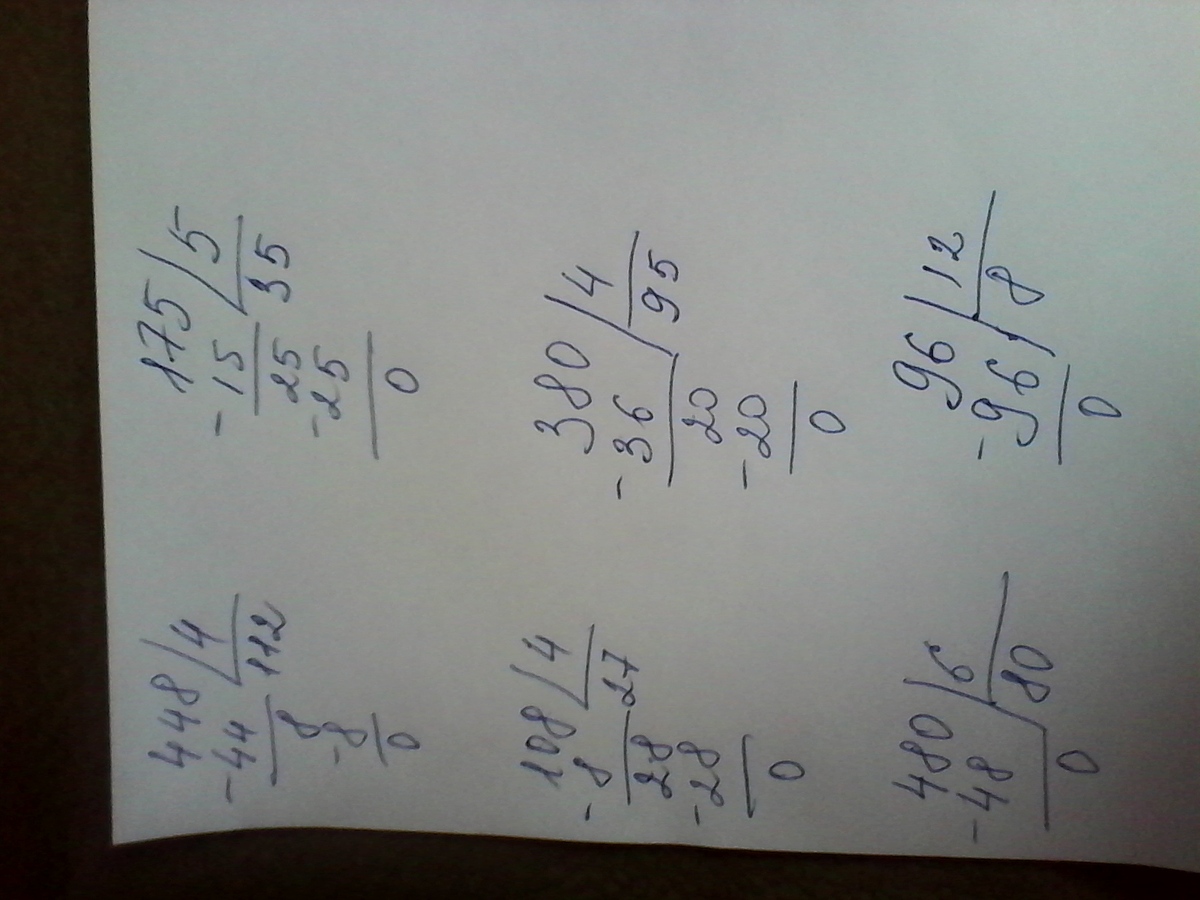 448 / 4
-44 112
8
-8
0
175 / 5
-15 35
25
-25
0
108 / 4
-8 27
28
-28
0
380 / 4
-36 95
20
-20
0
480 / 6
-48 80
0
96 / 12
-96 8
0